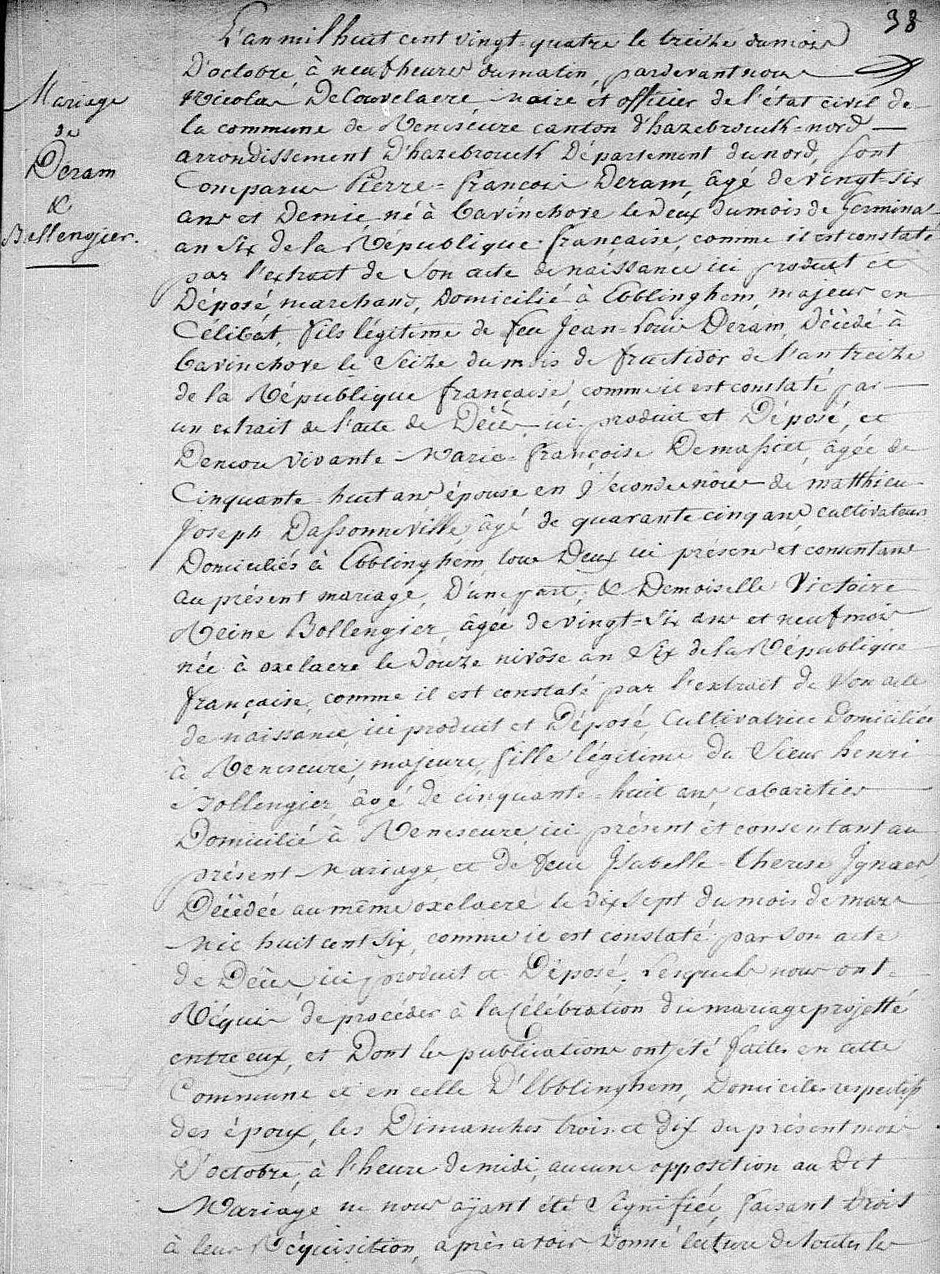 38
L'an mil huit cent vingt-quatre le treize du mois
D'octobre à neuf heures du matin, pardevant nous
Mariage
de
Deram
&
Bollengier.
Nicolas Decouvelaere maire et officier de l'état civil de
la commune de Renescure canton d'hazebrouck-nord
arrondissement D'hazebrouck Département du nord, sont
Comparus Pierre-François Deram, âgé de vingt-six
ans et Demie né à Bavinchove le deux du mois de Germinal
an Six de la République française, comme il est constaté
par l'extrait de Son acte de naissance ici produit et
Déposé, marchand, Domicilié à Ebblinghem, majeur en
Célibat, fils légitime de feu Jean-Louis Deram, Décédé à
Bavinchove le Seize du mois de fructidor de l'an treize
de la République française, comme il est constaté par
un extrait de l'acte de Décès, ici produit et Déposé, et
Dencore vivante Marie-Françoise Demassiet, âgée de
Cinquante-huit ans épouse en Secondes nôces de matthieu
Joseph Dassonneville, âgé de quarante cinq ans, cultivateurs
Domiciliés à Ebblinghem, tous Deux ici présens et consentans
au présent mariage, D'une part; & Demoiselle Victoire
Reine Bollengier, âgée de vingt-six ans et neuf mois
née à oxelaere le Douze nivôse an Six de la République
française, comme il est constaté par l'extrait de Son acte
de naissance, ici produit et Déposé, Cultivatrice Domiciliée
à Renescure, majeure, fille légitime du Sieur henri
Bollengier, âgé de cinquante-huit ans, cabaretier
Domicilié à Renescure ici présent et consentant au
présent Mariage, et de feue Isabelle-Therese Ignace,
Décédée au même oxelaere le dix Sept du mois de mars
Mil huit cent six, comme il est constaté par son acte
de Décès, ici produit et Déposé. Lesquels nous ont
Réquis de procéder à la Célébration du mariage projetté
entre eux, et Dont les publications ont été faites en cette
Commune et en celle D'Ebblinghem, Domiciles respectifs
des époux, les Dimanches trois et dix du présent mois
D'octobre, à l'heure de midi, aucune opposition au Dit
Mariage ne nous ayant été Signifiée, faisant droit
à leur Réquisition, après avoir Donné lecture de toutes les